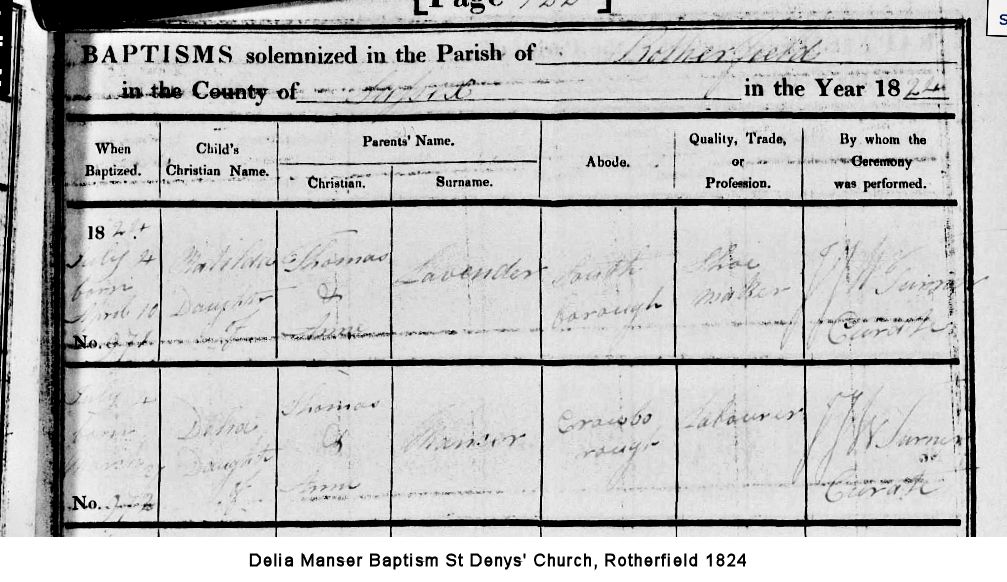 [Page 122]
S
BAPTISMS solemnized in the Parish of Rotherfield
in the County of Sussex in the Year 1824
When Baptized.
Child's Christian Name.
Parents' Name.
Christian.
Surname.
Abode.
Quality, Trade, or Profession.
By whom the Ceremony was performed.
1824.
July 4
born
April 10
No.
Matilda
Daughter
of
Thomas
&
Anne
Lavender
South
borough
Shoe
Maker
Turner
Curate
July 4
born
No.
Delia
Daughter
of
Thomas
&
Anne
Manser
Crowbo
rough
Labourer
Turner
Curate
Delia Manser Baptism St Denys' Church, Rotherfield 1824